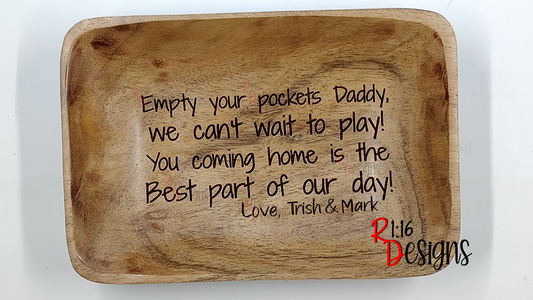 Empty your pockets Daddy,
we can't wait to play!
You coming home is the
Best part of our day!
Love, Trish & Mark
R1:16
Designs